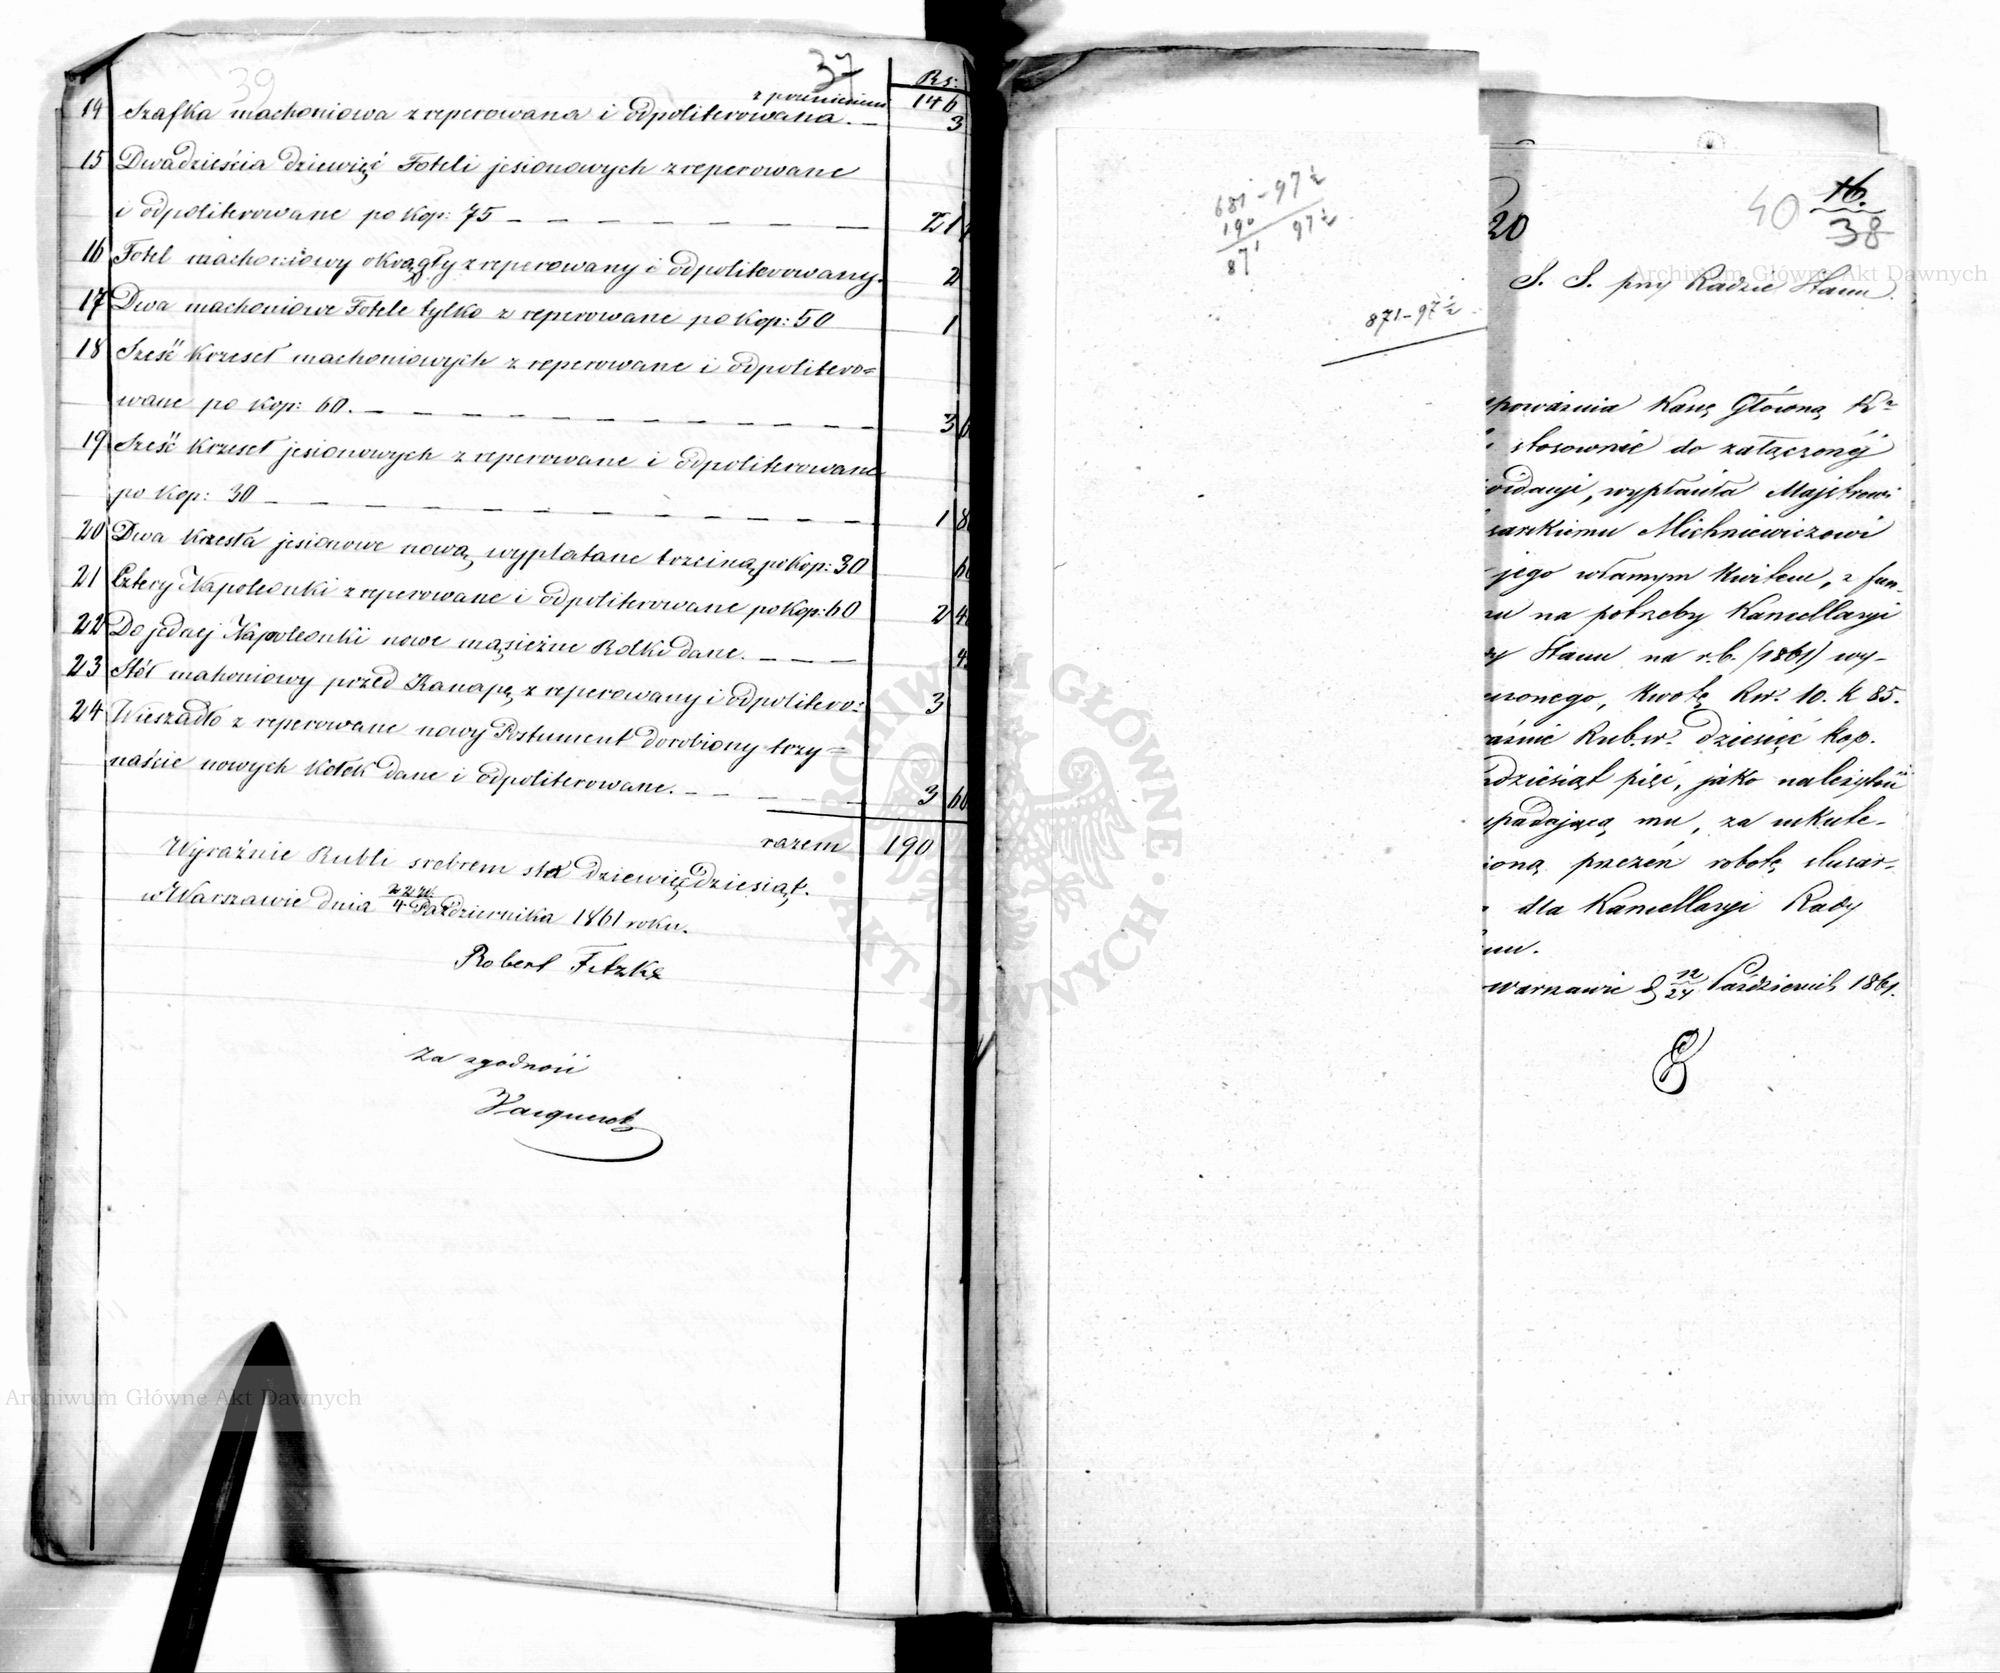 39
37
Rs:
z przeniesienia 146
14 Szafka machoniowa zreperowana i odpoliterowana. — 3
15 Dwadzieścia dziewięć Foteli jesionowych zreperowane
i odpoliterowane po Kop: 75 — — — — — — — 21
16 Fotel machoniowy okrągły zreperowany i odpoliterowany. 2
17 Dwa machoniowe Fotele tylko z reperowane po Kop: 50 1
18 Sześć Krzeseł machoniowych z reperowane i odpolitero=
wane po Kop: 60. — — — — — — — — — 3 6
19 Sześć Krzeseł jesionowych z reperowane i odpoliterowane
po Kop: 30 — — — — — — — — — — 1 8
20 Dwa Krzesła jesionowe nową wyplatane trzciną po Kop: 30 6
21 Cztery Napoleonki zreperowane i odpoliterowane po Kop: 60 2 4
22 Do jednej Napoleonki nowe mąsiężne Rolki dane. — — — 4
23 Stół mahoniowy przed Kanapę z reperowany i odpolitero: 3
24 Wieszadło z reperowane nowy Postument dorobiony trzy=
naście nowych Kołek dane i odpoliterowane. — — — — 3 60
razem 190
Wyraźnie Rubli srebrem sto dziewięćdziesiąt.
w Warszawie dnia 4 Października 1861 roku.
Robert Fitzke
Za zgodność
681-97½
190
871 97½
871-97½
20
40
16.
38
S. S. przy Radzie Stanu.
poważnia Kasę Główną K
stosownie do załączonéj
widacyi, wypłaciła Majstrowi
sarskiemu Michniewiczowi
jego własnym Kwitem, z fun-
zu na potrzeby Kancellaryi
dy Stanu na r.b. (1861) wy-
czonego, Kwotę Rsr. 10. K 85.
raźnie Rub.sr. dziesięć kop.
dziesiąt pięć, jako należytość
padającą mu, za uskute-
ioną przezeń robotę slusar-
dla Kancellaryi Rady
nu.
Warszawie d 12/24 Październik 1861.
ARCHIWUM GŁÓWNE AKT DAWNYCH
Archiwum Główne Akt Dawnych
Archiwum Główne Akt Dawnych